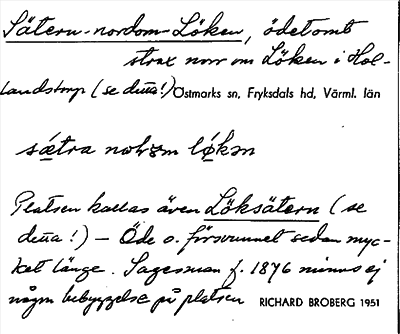 Sätern nordom Löken, ödetomt
strax norr om Löken i Hol-
landstorp (se detta!) Östmarks sn, Fryksdals hd, Värml. län
sætra nolrəm løkən
Platsen kallas även Löksätern (se
detta!) – Öde o. försvunnet sedan myc-
ket länge. Sagesman f. 1876 minns ej
någon bebyggelse på platsen RICHARD BROBERG 1951